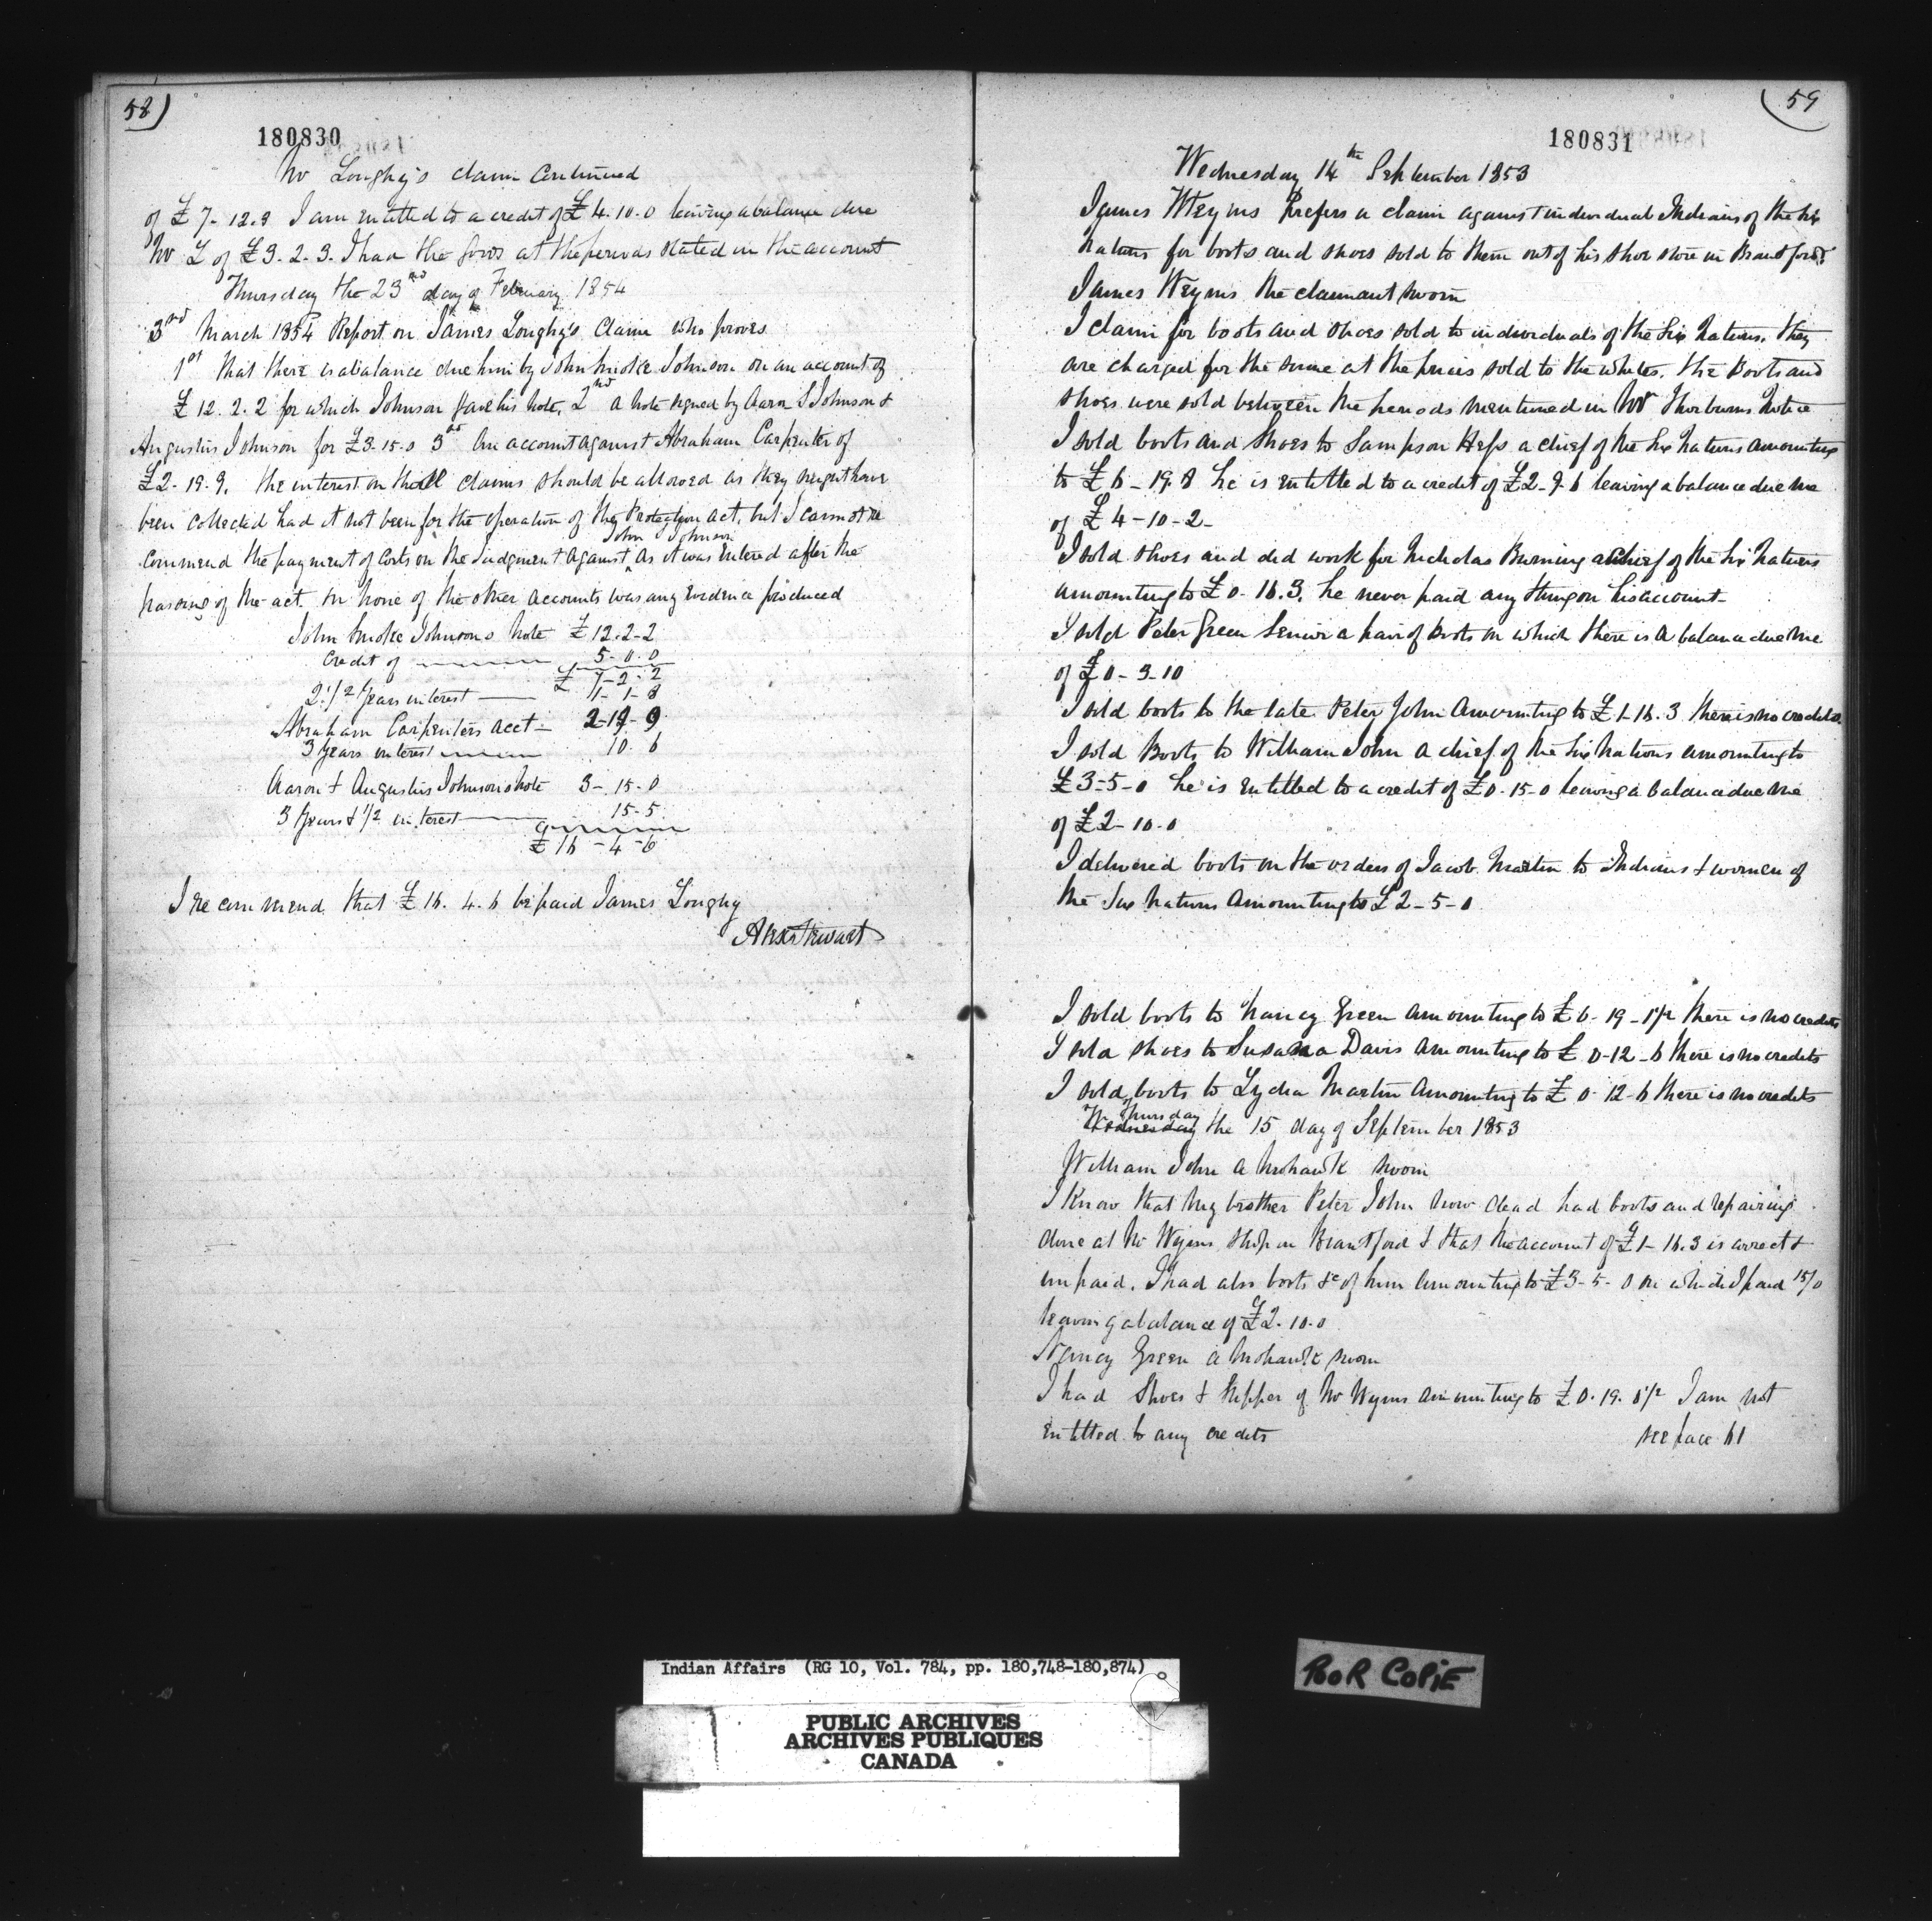 58)
180830
Mr Loughy's claim continued
of £ 7-12.3 I am entitled to a credit of £ 4.10.0 leaving a balance due
Mr L of £ 3.2.3. I had the goods at the periods stated in the account
Thursday the 23rd day of February 1854
3rd March 1854 Report on James Loughy's Claim who proves
1st That there is a balance due him by John Smoke Johnson on an account of
£ 12.2.2 for which Johnson gave his note, 2nd a note signed by Aaron S Johnson &
Augustus Johnson for £3.15.0 3rd An account against Abraham Carpenter of
£2-19.9. The interest on the claims should be allowed as they might have
been collected had it not been for the operation of the Protection act, but I cannot re
John Johnson
commend the payment of Costs on the Judgment against as it was entered after the
passing of the act. In none of the other accounts was any evidence produced
John Smoke Johnsons Note £ 12.2-2
Credit of 5-0.0
£ 7-2-2
2 1/2 years interest 1-1-8
Abraham Carpenters acct - 2-19-9
3 years interest 10.6
Aaron & Augustus Johnsons Note 3-15-0
3 years & 1/2 interest 15-5
£ 16-4-6
I recommend that £ 16.4.6 be paid James Loughy
Alex Stewart
(59
180831
Wednesday 14th September 1853
James Weyms Prefers a claim against individual Indians of the Six
Nations for boots and shoes sold to them out of his shoe store in Brantford
James Weyms the claimant sworn
I claim for boots and shoes sold to individuals of the Six Nations. They
are charged for the same at the prices sold to the whites. The Boots and
shoes were sold between the periods mentioned in Mr Thorburns Notice
I sold boots and shoes to Sampson Hess a chief of the Six Nations amounting
to £ 6-19.8 he is entitled to a credit of £2-9.6 leaving a balance due me
of £ 4-10-2-
I sold shoes and did work for Nicholas Burning a Chief of the Six Nations
amounting to £ 0.16.3. he never paid any thing on his account-
I sold Peter Green Senior a pair of Boots on which there is a balance due me
of £ 0-3-10
I sold boots to the late Peter John Amounting to £ 1-16.3 there is no credits
I sold Boots to William John a chief of the Six Nations amounting to
£ 3-5-0 he is entitled to a credit of £ 0.15-0 leaving a balance due me
of £ 2-10-0
I delivered boots on the orders of Jacob Martin to Indians & women of
the Six Nations Amounting to £ 2-5-0
I sold boots to Nancy Green Amounting to £ 0-19-1 1/2 there is no credits
I sold shoes to Susana Davis Amounting to £ 0-12-6 there is no credits
I sold boots to Lydia Martin Amounting to £ 0-12-6 there is no credits
Thursday
Wednesday the 15 day of September 1853
William John a Mohawk sworn
I know that my brother Peter John now dead had boots and repairing
done at Mr Wyms shop in Brantford & that the account of £ 1-16.3 is correct &
unpaid. I had also boots &c of him Amounting to £ 3-5-0 on which I paid 15/0
leaving a balance of £2.10.0
Nancy Green a Mohawk sworn
I had Shoes & Slipper of Mr Wyms amounting to £ 0.19.1 1/2 I am not
entitled to any credits see page 61
Indian Affairs (RG 10, Vol. 784, pp. 180,748-180,874)
PUBLIC ARCHIVES
ARCHIVES PUBLIQUES
CANADA
POOR COPIE